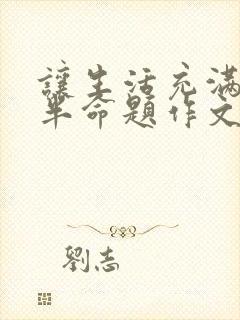 讓生活充滿
半命題作文
劉志